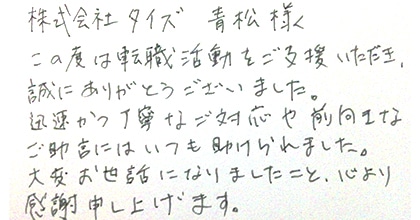 株式会社タイズ 青松様
この度は転職活動をご支援いただき、
誠にありがとうございました。
迅速かつ丁寧なご対応や前向きな
ご助言にはいつも助けられました。
大変お世話になりましたこと、心より
感謝申し上げます。